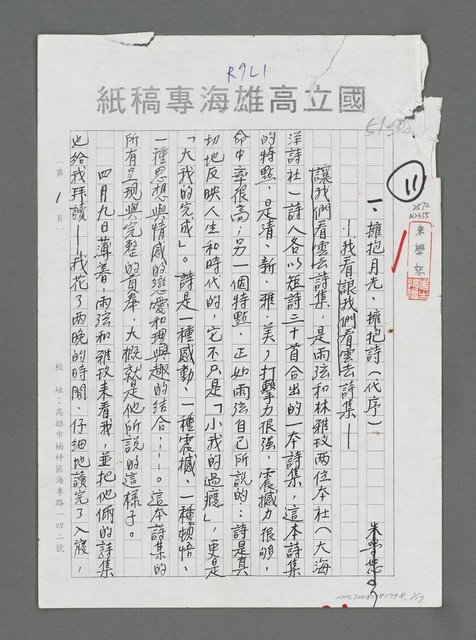 R9L1
國立高雄海專稿紙
11
2572
N2355
朱學恕
一、擁抱月光、擁抱詩（代序）
—我看「讓我們看雲去詩集」—
朱學恕
讓我們看雲去詩集，是雨弦和林雅玟兩位本社（大海
洋詩社）詩人各以短詩三十首合出的一本詩集，這本詩集
的特點，是清、新、雅、美，打擊力很强，震撼力很夠，
命中率很高；另一個特點，正如雨弦自己所說的：詩是真
切地反映人生和時代的，它不只是「小我的過癮」，更是
「大我的完成」。詩是一種感動，一種震撼，一種頓悟、
一種思想與情感的戀愛和理與趣的結合……。這本詩集的
所有呈現與完整的貢奉，大概就是他所說的這樣子。
四月九日薄暮，雨弦和雅玟來看我，並把他倆的詩集
也給我拜讀——我花了兩晚的時間，仔細地讀完了入寢，
（第1頁）
校址：高雄市楠梓區海專路一四二號